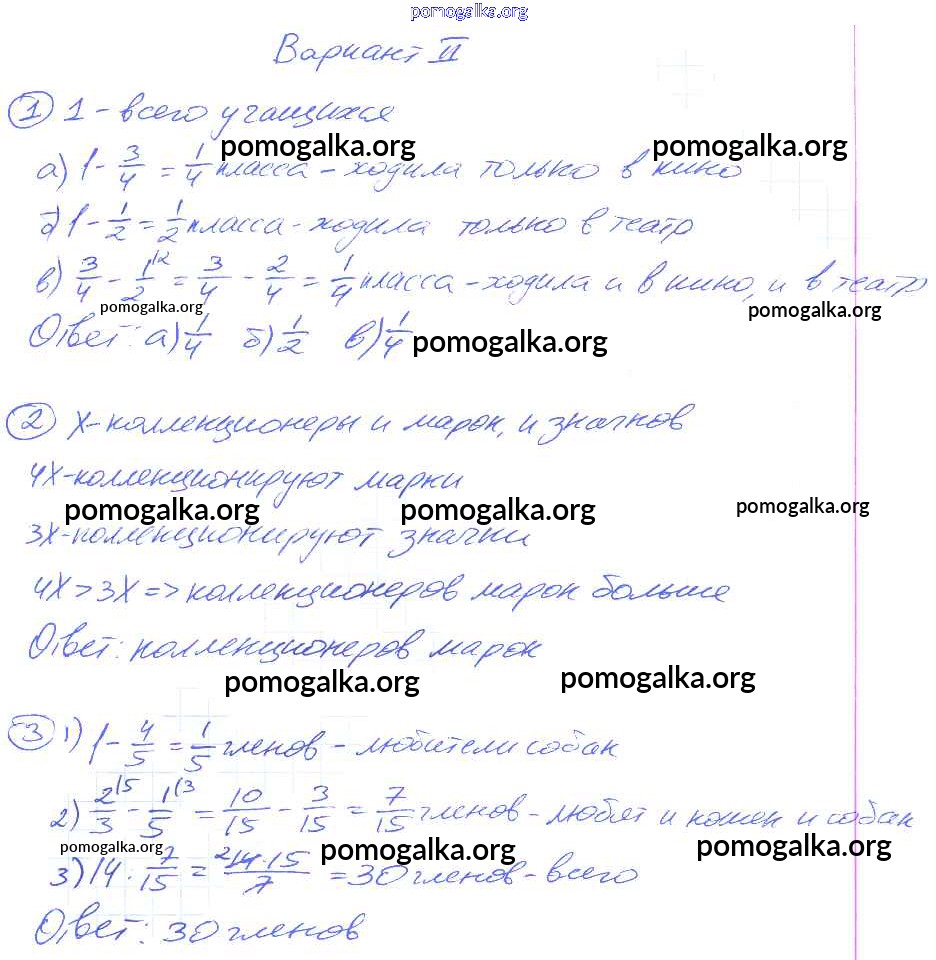 pomogalka.org
Вариант II
① 1 - всего учащихся
pomogalka.org pomogalka.org
а) 1 - 3/4 = 1/4 класса - ходила только в кино
б) 1 - 1/2 = 1/2 класса - ходила только в театр
в) 3/4 - 1/2 \2 = 3/4 - 2/4 = 1/4 класса - ходила и в кино, и в театр
pomogalka.org pomogalka.org
Ответ: а) 1/4 б) 1/2 в) 1/4
pomogalka.org
② х - коллекционеры и марок, и значков
4х - коллекционируют марки
pomogalka.org pomogalka.org pomogalka.org
3х - коллекционируют значки
4х > 3х => коллекционеров марок больше
Ответ: коллекционеров марок
pomogalka.org pomogalka.org
③ 1) 1 - 4/5 = 1/5 членов - любители собак
2) 2/3 \5 - 1/5 \3 = 10/15 - 3/15 = 7/15 членов - любят и кошек и собак
pomogalka.org pomogalka.org pomogalka.org
3) 14 · 7/15 = 2 14·15/7 = 30 членов - всего
Ответ: 30 членов